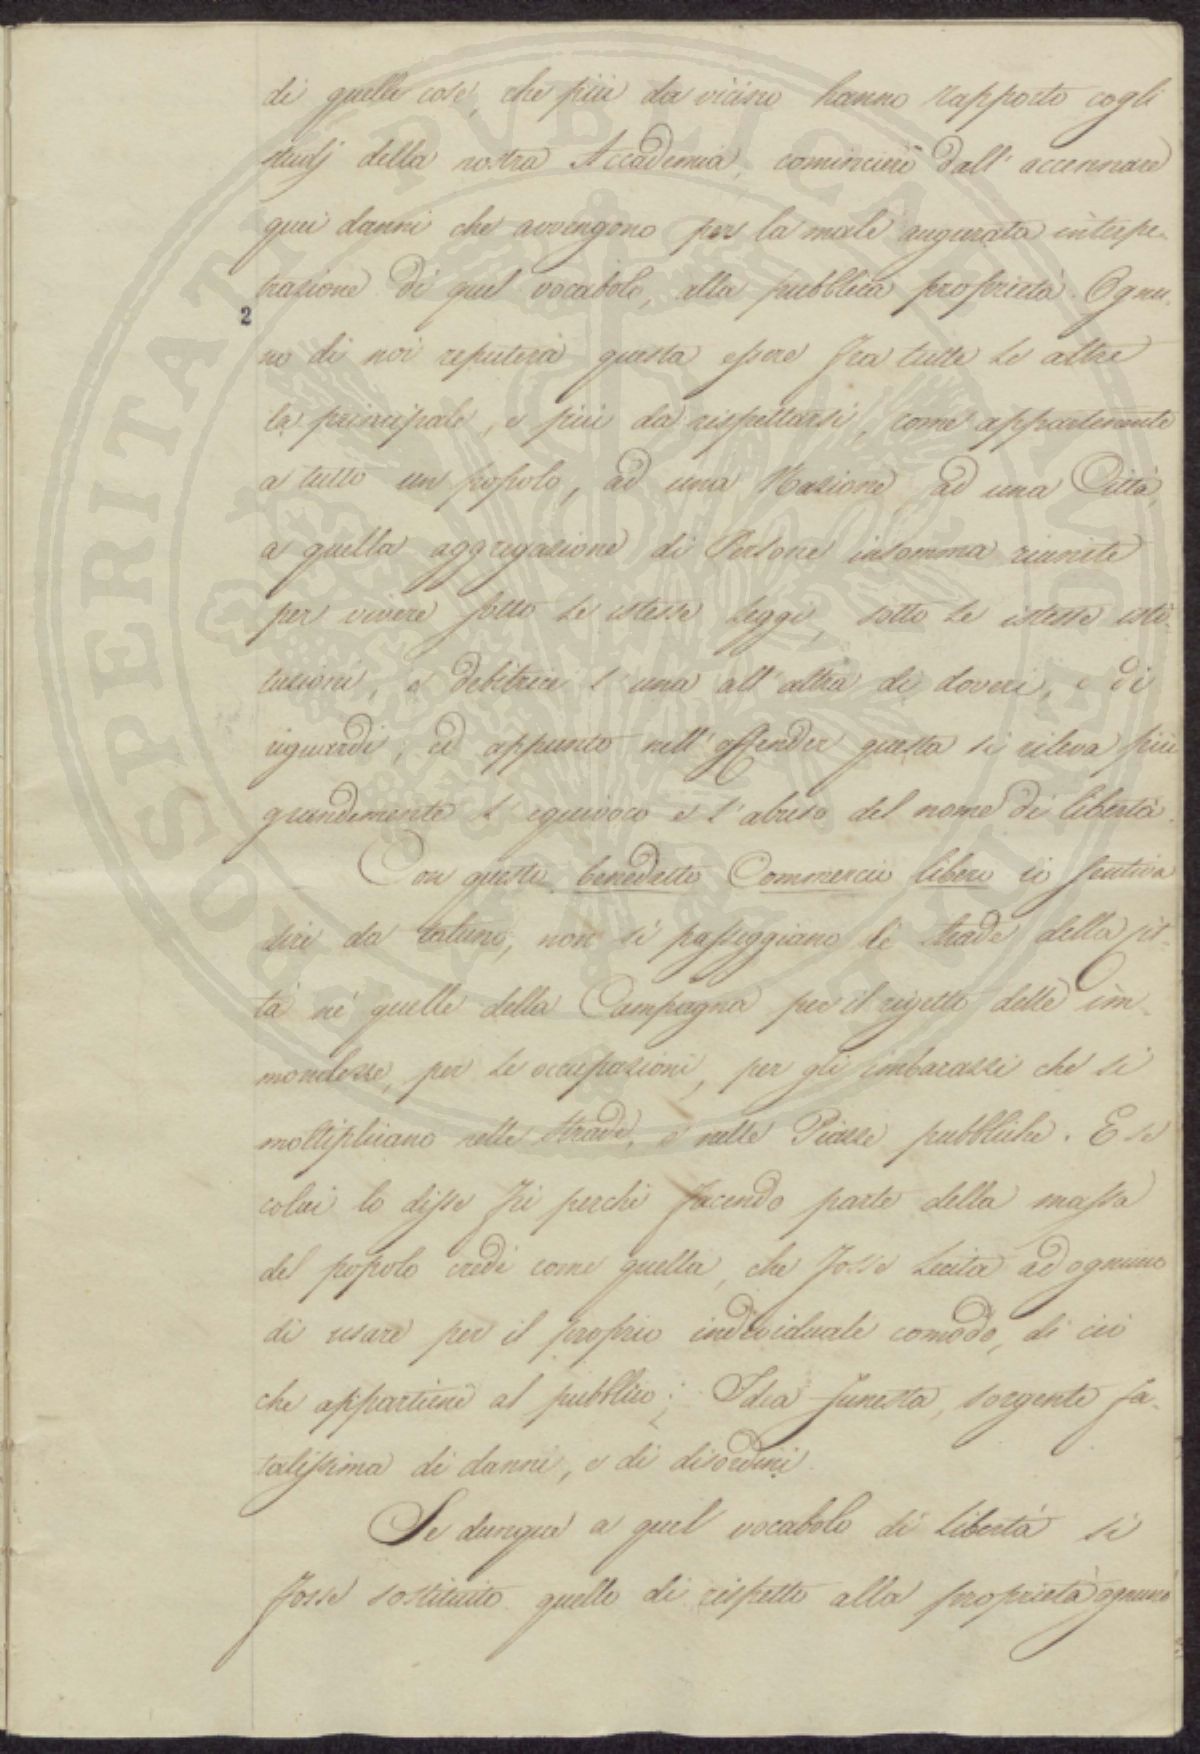 di quelle cose, che più da vicino hanno rapporto cogli
studj della nostra Accademia, comincierò dall'accennare
quei danni che avvengono per la male augurata interpe-
trazione di quel vocabolo, alla pubblica proprietà. Ognu-
2
no di noi reputerà questa essere fra tutte le altre
la principale, e più da rispettarsi, come appartenente
a tutto un popolo, ad una Nazione, ad una Città,
a quella aggregazione di Persone insomma riunite
per vivere sotto le istesse Leggi, sotto le istesse isti-
tuzioni, e debitrici l'una all'altra di doveri, e di
riguardi; ed appunto nell'offender questa si rileva più
grandemente l'equivoco e l'abuso del nome di libertà.
Con questo benedetto Commercio libero si sentiva
dire da taluno, non si passeggiano le strade della cit-
tà nè quelle della Campagna per il rigetto delle im-
mondezze, per le occupazioni, per gli imbarazzi che si
moltiplicano nelle strade, e nelle Piazze pubbliche. E se
colui lo disse fù perchè facendo parte della massa
del popolo crede come quella, che fosse lecito ad ognuno
di usare per il proprio individuale comodo, di ciò
che appartiene al pubblico; Idea funesta, sorgente fa-
talissima di danni, e di disordini.
Se dunque a quel vocabolo di libertà si
fosse sostituito quello di rispetto alla proprietà ognuno
PROSPERITATI PVBLICAE